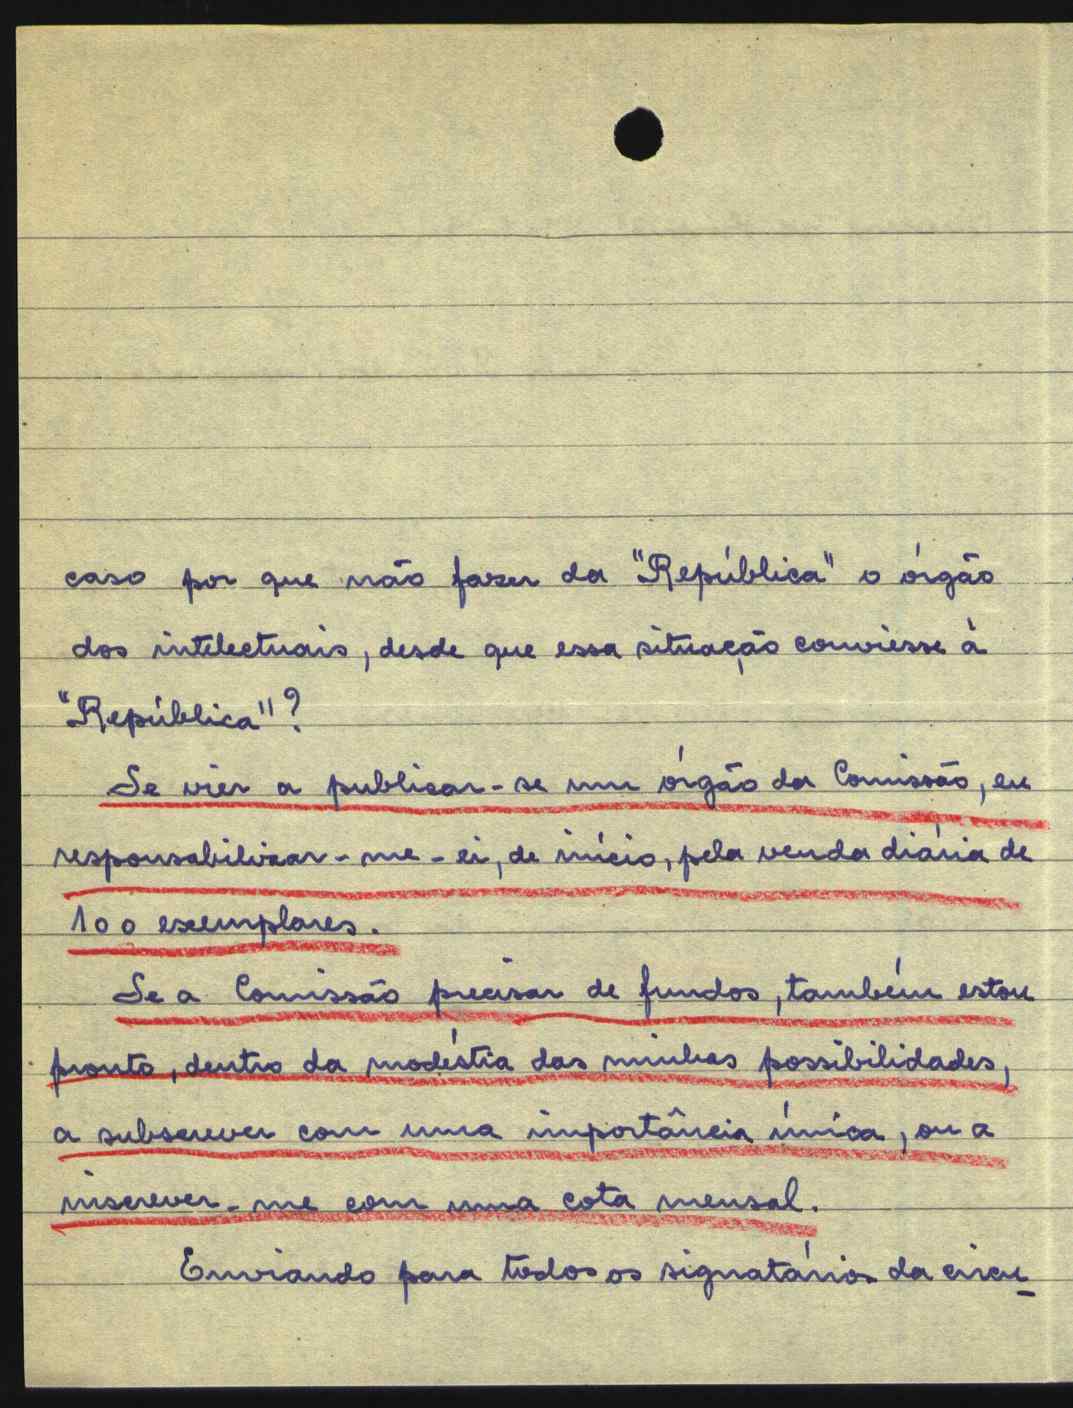 caso por que não fazer da "República" o órgão
dos intelectuais, desde que essa situação conviesse à
"República"?
Se vier a publicar-se um órgão da Comissão, eu
responsabilizar-me-ei, de início, pela venda diária de
100 exemplares.
Se a Comissão precisar de fundos, também estou
pronto, dentro da modéstia das minhas possibilidades,
a subscrever com uma importância única, ou a
inscrever-me com uma cota mensal.
Enviando para todos os signatários da circu-